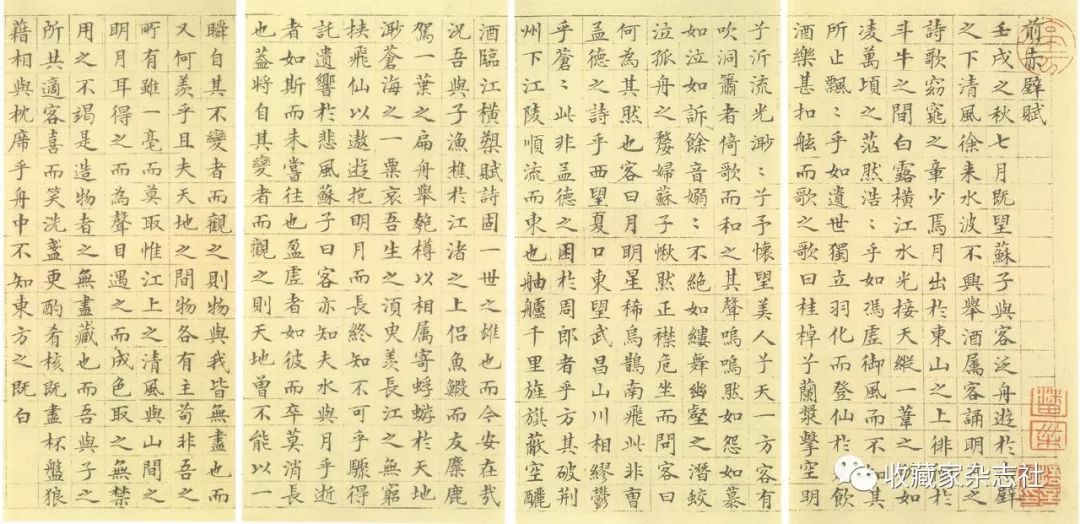 前赤壁賦
壬戌之秋七月既望蘇子與客泛舟遊於赤壁
之下清風徐来水波不興舉酒属客誦明月之
詩歌窈窕之章少焉月出於東山之上徘徊於
斗牛之間白露橫江水光接天縱一葦之所如
凌萬頃之茫然浩〻乎如馮虛御風而不知其
所止飄〻乎如遺世獨立羽化而登仙於是飲
酒樂甚扣舷而歌之歌曰桂棹兮蘭槳擊空明
兮泝流光渺〻兮予懷望美人兮天一方客有
吹洞簫者倚歌而和之其聲嗚嗚然如怨如慕
如泣如訴餘音嫋〻不絕如縷舞幽壑之潛蛟
泣孤舟之嫠婦蘇子愀然正襟危坐而問客曰
何為其然也客曰月明星稀烏鵲南飛此非曹
孟德之詩乎西望夏口東望武昌山川相繆鬱
乎蒼〻此非孟德之困於周郎者乎方其破荊
州下江陵順流而東也舳艫千里旌旗蔽空釃
酒臨江橫槊賦詩固一世之雄也而今安在哉
況吾與子漁樵於江渚之上侶魚鰕而友麋鹿
駕一葉之扁舟舉匏樽以相属寄蜉蝣於天地
渺蒼海之一粟哀吾生之須臾羨長江之無窮
挾飛仙以遨遊抱明月而長終知不可乎驟得
託遺響於悲風蘇子曰客亦知夫水與月乎逝
者如斯而未嘗往也盈虛者如彼而卒莫消長
也葢將自其變者而觀之則天地曾不能以一
瞬自其不變者而觀之則物與我皆無盡也而
又何羨乎且夫天地之間物各有主苟非吾之
所有雖一毫而莫取惟江上之清風與山間之
明月耳得之而為聲目遇之而成色取之無禁
用之不竭是造物者之無盡藏也而吾與子之
所共適客喜而笑洗盞更酌肴核既盡杯盤狼
藉相與枕席乎舟中不知東方之既白
收藏家杂志社